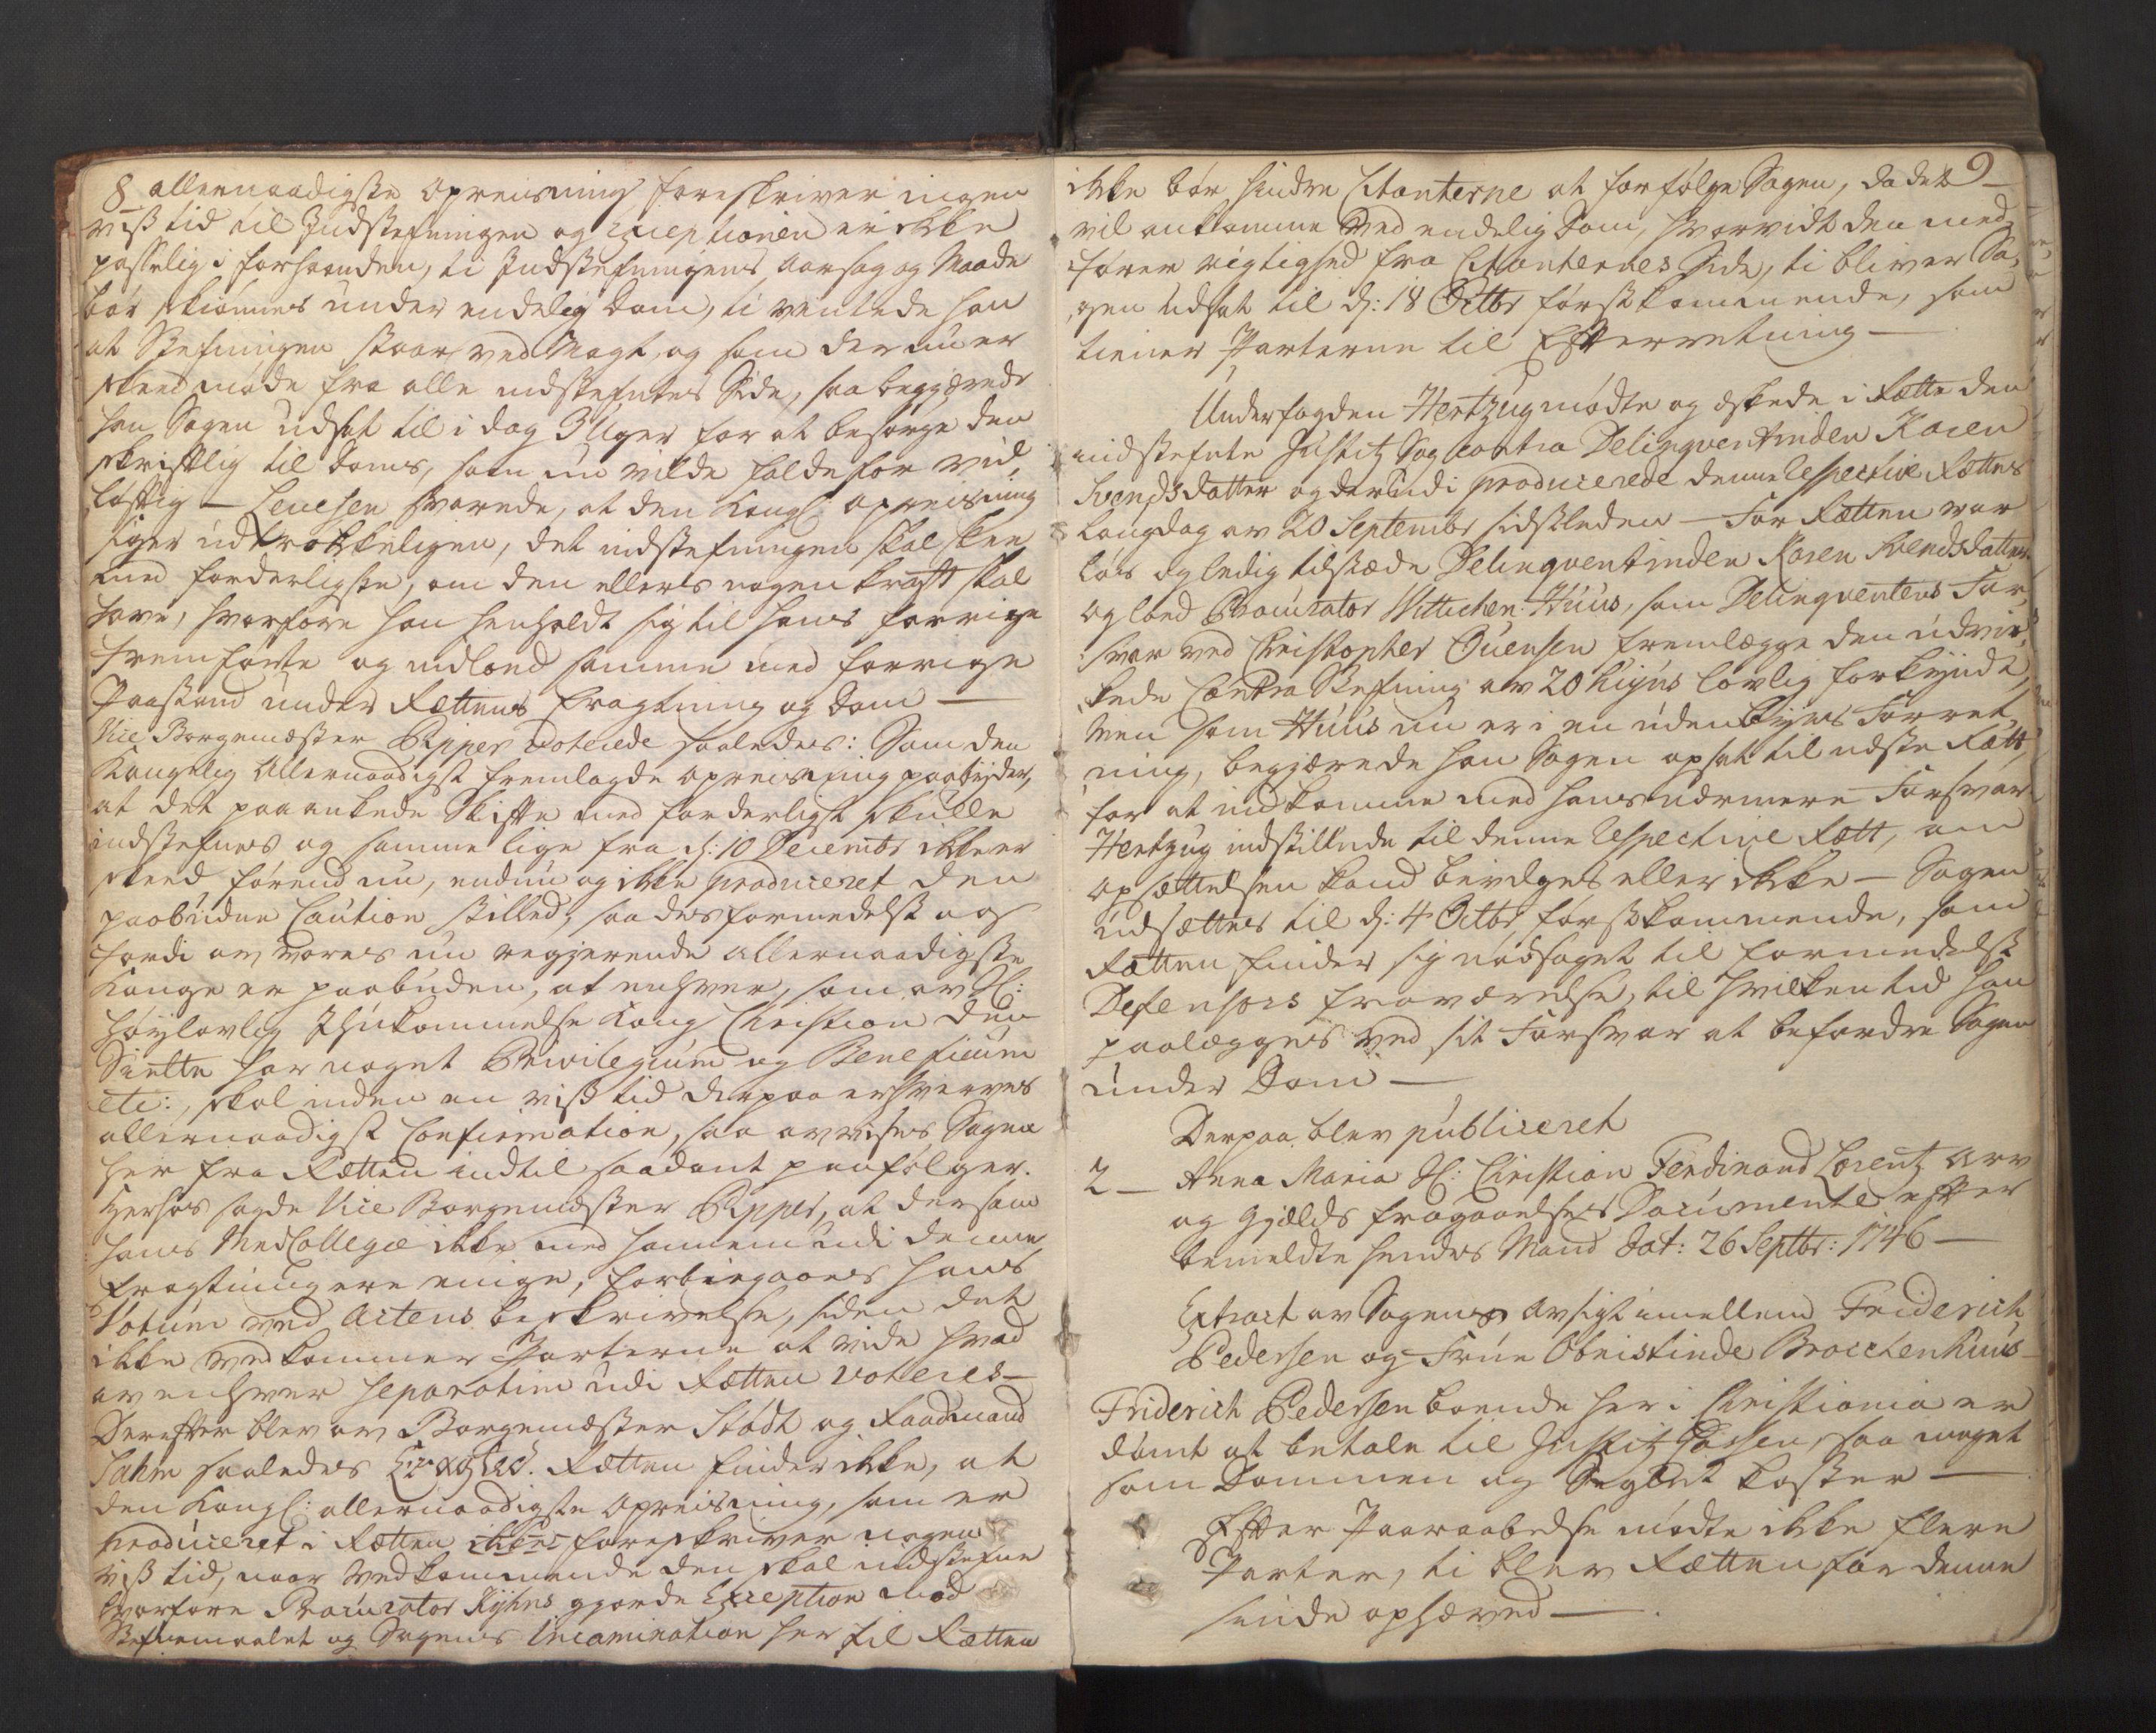 8
allernaadigste opreisning foreskriver ingen
viss tid til Indstefningen og Exceptionen er ikke
passelig i forhaanden, ti Indstefningens Aarsag og Maade
bør skiønnes under endelig Dom, ti meente han
at Stefningen staar ved Magt, og som der nu er
skeed møde fra alle indstefntes Side, saa begjærede
han Sagen udsat til i dag 3 Uger for at besørge den
skriftlig til Doms, som nu vilde falde for vid-
løftig — Leuesen svarede, at den Kongl: opreisning
siger udtrøkkeligen, det indstefningen skal skee
med forderligste, om den ellers nogen kraft skal
have, hvorfore han henholdt sig til hans forrige
fremførte og indlood samme med forrige
Paastand under Rettens Eragtning og Dom —
Vice Borgemæster Pipper voterede saaledes: Som den
Kongelig Allernaadigst fremlagde opreisning paabyder,
at det paaankede Skifte med forderligst skulle
indstefnes og samme lige fra d: 10 Decembr ikke er
skeed førend nu, endnu og ikke produceret den
paabudne Caution stilled, saa desformedelst og
fordi av vores nu regjerende allernaadigste
Konge er paabuden, at enhver, som av Sl:
Høylovlig Ihukommelse Kong Christian den
Siette har noget Privilegium og Beneficium
etc:, skal inden en viss tid derpaa erhverves
allernaadigst Confirmation, saa avvises Sagen
her fra Retten indtil saadant paafølger.
Herhos sagde Vice Borgemæster Pipper, at dersom
hans MedCollegæ ikke med hannem udi denne
Eragtning ere enige, forbiegaaes hans
Votum ved Actens beskrivelse, siden det
ikke vedkommer Parterne at vide hvad
av enhver separatim udi Retten voteres —
Derefter blev av Borgemæster Stødt og Raadmand
Sahm saaledes Eragtet. Retten finder ikke, at
den Kongl: allernaadigste opreisning, som er
produceret i Retten ikke foreskriver nogen
viss tid, naar Vedkommende den skal indstefne
hvorfore Procurator Ryhns gjorde Exception mod
Stefnemaalet og Sagens Incamination her til Retten
9
ikke bør hindre Citanterne at forfølge Sagen, da det
vil ankomme ved endelig Dom, hvorvidt den med-
fører rigtighed fra Citanternes Side, ti bliver Sa-
gen udsat til d: 18 Octbr førstkommende, som
tiener Parterne til Efterretning —
Underfogden Hertzug mødte og æskede i Rette den
indstefnte Justitz Sag contra Delinqventinden Karen
Svendsdatter og derudi producerede denne Respective Rettes
Laugdag av 20 Septembr sidstleden — For Retten war
løs og ledig tilstæde Delinqventinden Karen Svendsdatter
og lood Procurator Wittichen Huus, som Delinqventens For-
svar ved Christopher Ouensen fremlægge den udvir-
kede Contra Stefning av 20 hujus lovlig forkyndt,
Men som Huus nu er i en udenbyes Forret-
ning, begjærede han Sagen opsat til neste Rett,
for at indkomme med hans nærmere Forsvar
Hertzug indstillede til denne Respective Rett, om
opsættelsen kand bevilges eller ikke — Sagen
udsættes til d: 4 Octbr førstkommende, som
Retten finder sig nødsaget til formedelst
Defensors fraværelse, til hvilken tid han
paalægges ved sit Forsvar at befordre Sagen
under Dom —
Derpaa blev publiceret
2 — Anna Maria Sl: Christian Ferdinand Lorentz Arv
og Gjælds fragaaelses Documente efter
bemeldte hendes Mand Dat: 26 Septbr: 1746 —
Extract av Sagens Avsigt imellem Friderich
Pedersen og Frue Obristinde Brockenhuus —
Friderich Pedersen boende her i Christiania er
dømt at betale til Justitz Cassen, saa meget
som Dommen og Seglet koster —
Efter Paaraabelse mødte ikke flere
Parter, ti blev Retten for denne
sinde ophæved —